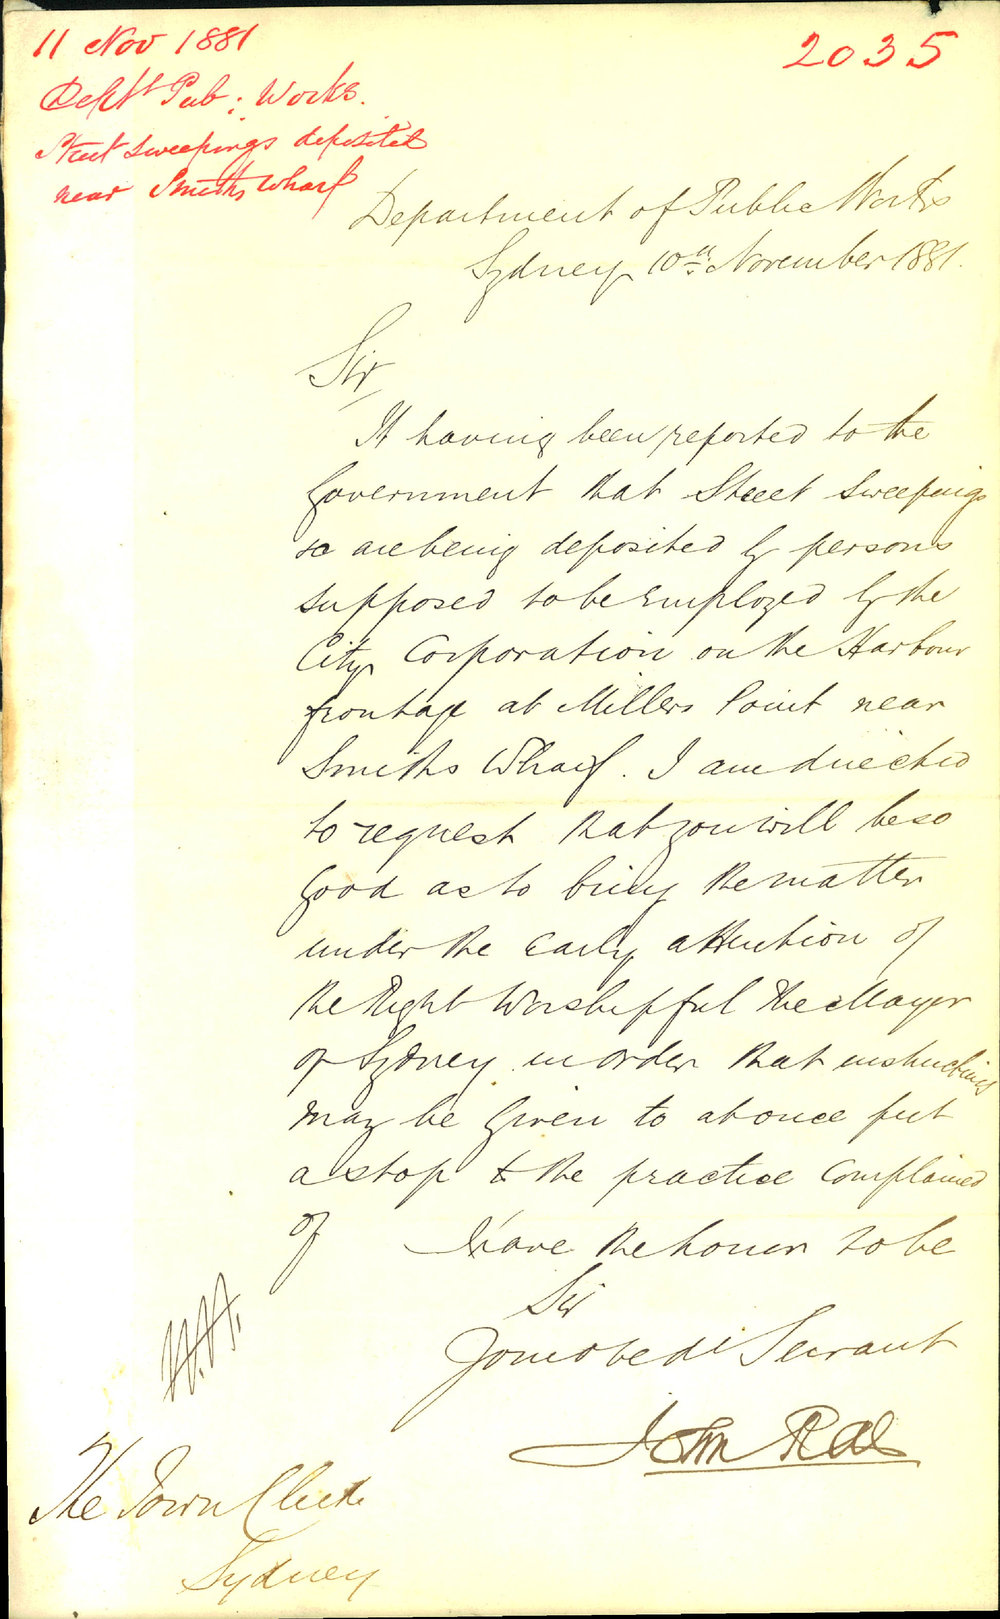 11 Nov 1881
2035
Dept Pub: Works.
Street sweepings deposited
near Smiths Wharf
Department of Public Works
Sydney 10th November 1881.
Sir,
It having been reported to the
Government that Street Sweepings
&c are being deposited by persons
supposed to be Employed by the
City Corporation on the Harbour
frontage at Millers Point near
Smiths Wharf. I am directed
to request that you will be so
Good as to bring the matter
under the early attention of
the Right Worshipful the Mayor
of Sydney in order that instructions
may be Given to at once put
a stop to the practice Complained
of I have the honor to be
Sir
Your obedt Servant
John Rae
The Town Clerk
Sydney